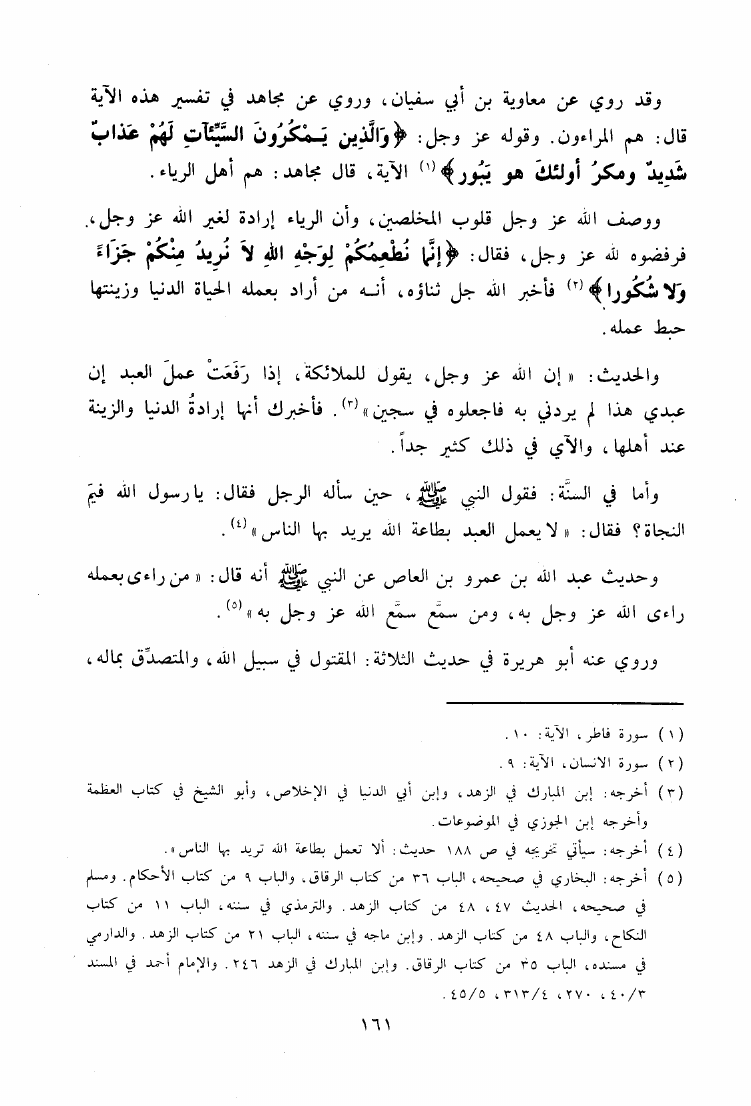 وقد روي عن معاوية بن أبي سفيان، وروي عن مجاهد في تفسير هذه الآية
قال: هم المراءون. وقوله عز وجل: ﴿وَالَّذِين يَـمْكُرُونَ السَّيِّئآتِ لَهُمْ عَذابٌ
شَدِيدٌ ومكرُ أولئكَ هو يَبُور﴾(١) الآية، قال مجاهد: هم أهل الرياء.
ووصف الله عز وجل قلوب المخلصين، وأن الرياء إرادة لغير الله عز وجل،
فرفضوه لله عز وجل، فقال: ﴿إنَّما نُطْعِمُكُمْ لِوَجْهِ اللهِ لاَ نُرِيدُ مِنْكُمْ جَزَاءً
وَلا شُكُورا﴾(٢) فأخبر الله جل ثناؤه، أنـه من أراد بعمله الحياة الدنيا وزينتها
حبط عمله.
والحديث: «إن الله عز وجل، يقول للملائكة، إذا رَفَعَتْ عملَ العبد إن
عبدي هذا لم يردني به فاجعلوه في سجين»(٣). فأخبرك أنها إرادةُ الدنيا والزينة
عند أهلها، والآي في ذلك كثير جداً.
وأما في السنَّة: فقول النبي ﷺ، حين سأله الرجل فقال: يا رسول الله فيمَ
النجاة؟ فقال: «لا يعمل العبد بطاعة الله يريد بها الناس»(٤).
وحديث عبد الله بن عمرو بن العاص عن النبي ﷺ أنه قال: «من راءى بعمله
راءى الله عز وجل به، ومن سمَّع سمَّع الله عز وجل به»(٥).
وروي عنه أبو هريرة في حديث الثلاثة: المقتول في سبيل الله، والمتصدِّق بماله،
(١) سورة فاطر، الآية: ١٠.
(٢) سورة الانسان، الآية: ٩.
(٣) أخرجه: إبن المبارك في الزهد، وإبن أبي الدنيا في الإخلاص، وأبو الشيخ في كتاب العظمة
وأخرجه إبن الجوزي في الموضوعات.
(٤) أخرجه: سيأتي تخريجه في ص ١٨٨ حديث: ألا تعمل بطاعة الله تريد بها الناس».
(٥) أخرجه: البخاري في صحيحه، الباب ٣٦ من كتاب الرقاق، والباب ٩ من كتاب الأحكام. ومسلم
في صحيحه، الحديث ٤٧، ٤٨ من كتاب الزهد. والترمذي في سننه، الباب ١١ من كتاب
النكاح، والباب ٤٨ من كتاب الزهد. وإبن ماجه في سننه، الباب ٢١ من كتاب الزهد. والدارمي
في مسنده، الباب ٣٥ من كتاب الرقاق. وإبن المبارك في الزهد ٢٤٦. والإمام أحمد في المسند
٤٠/٣، ٢٧٠، ٣١٣/٤، ٤٥/٥.
١٦١